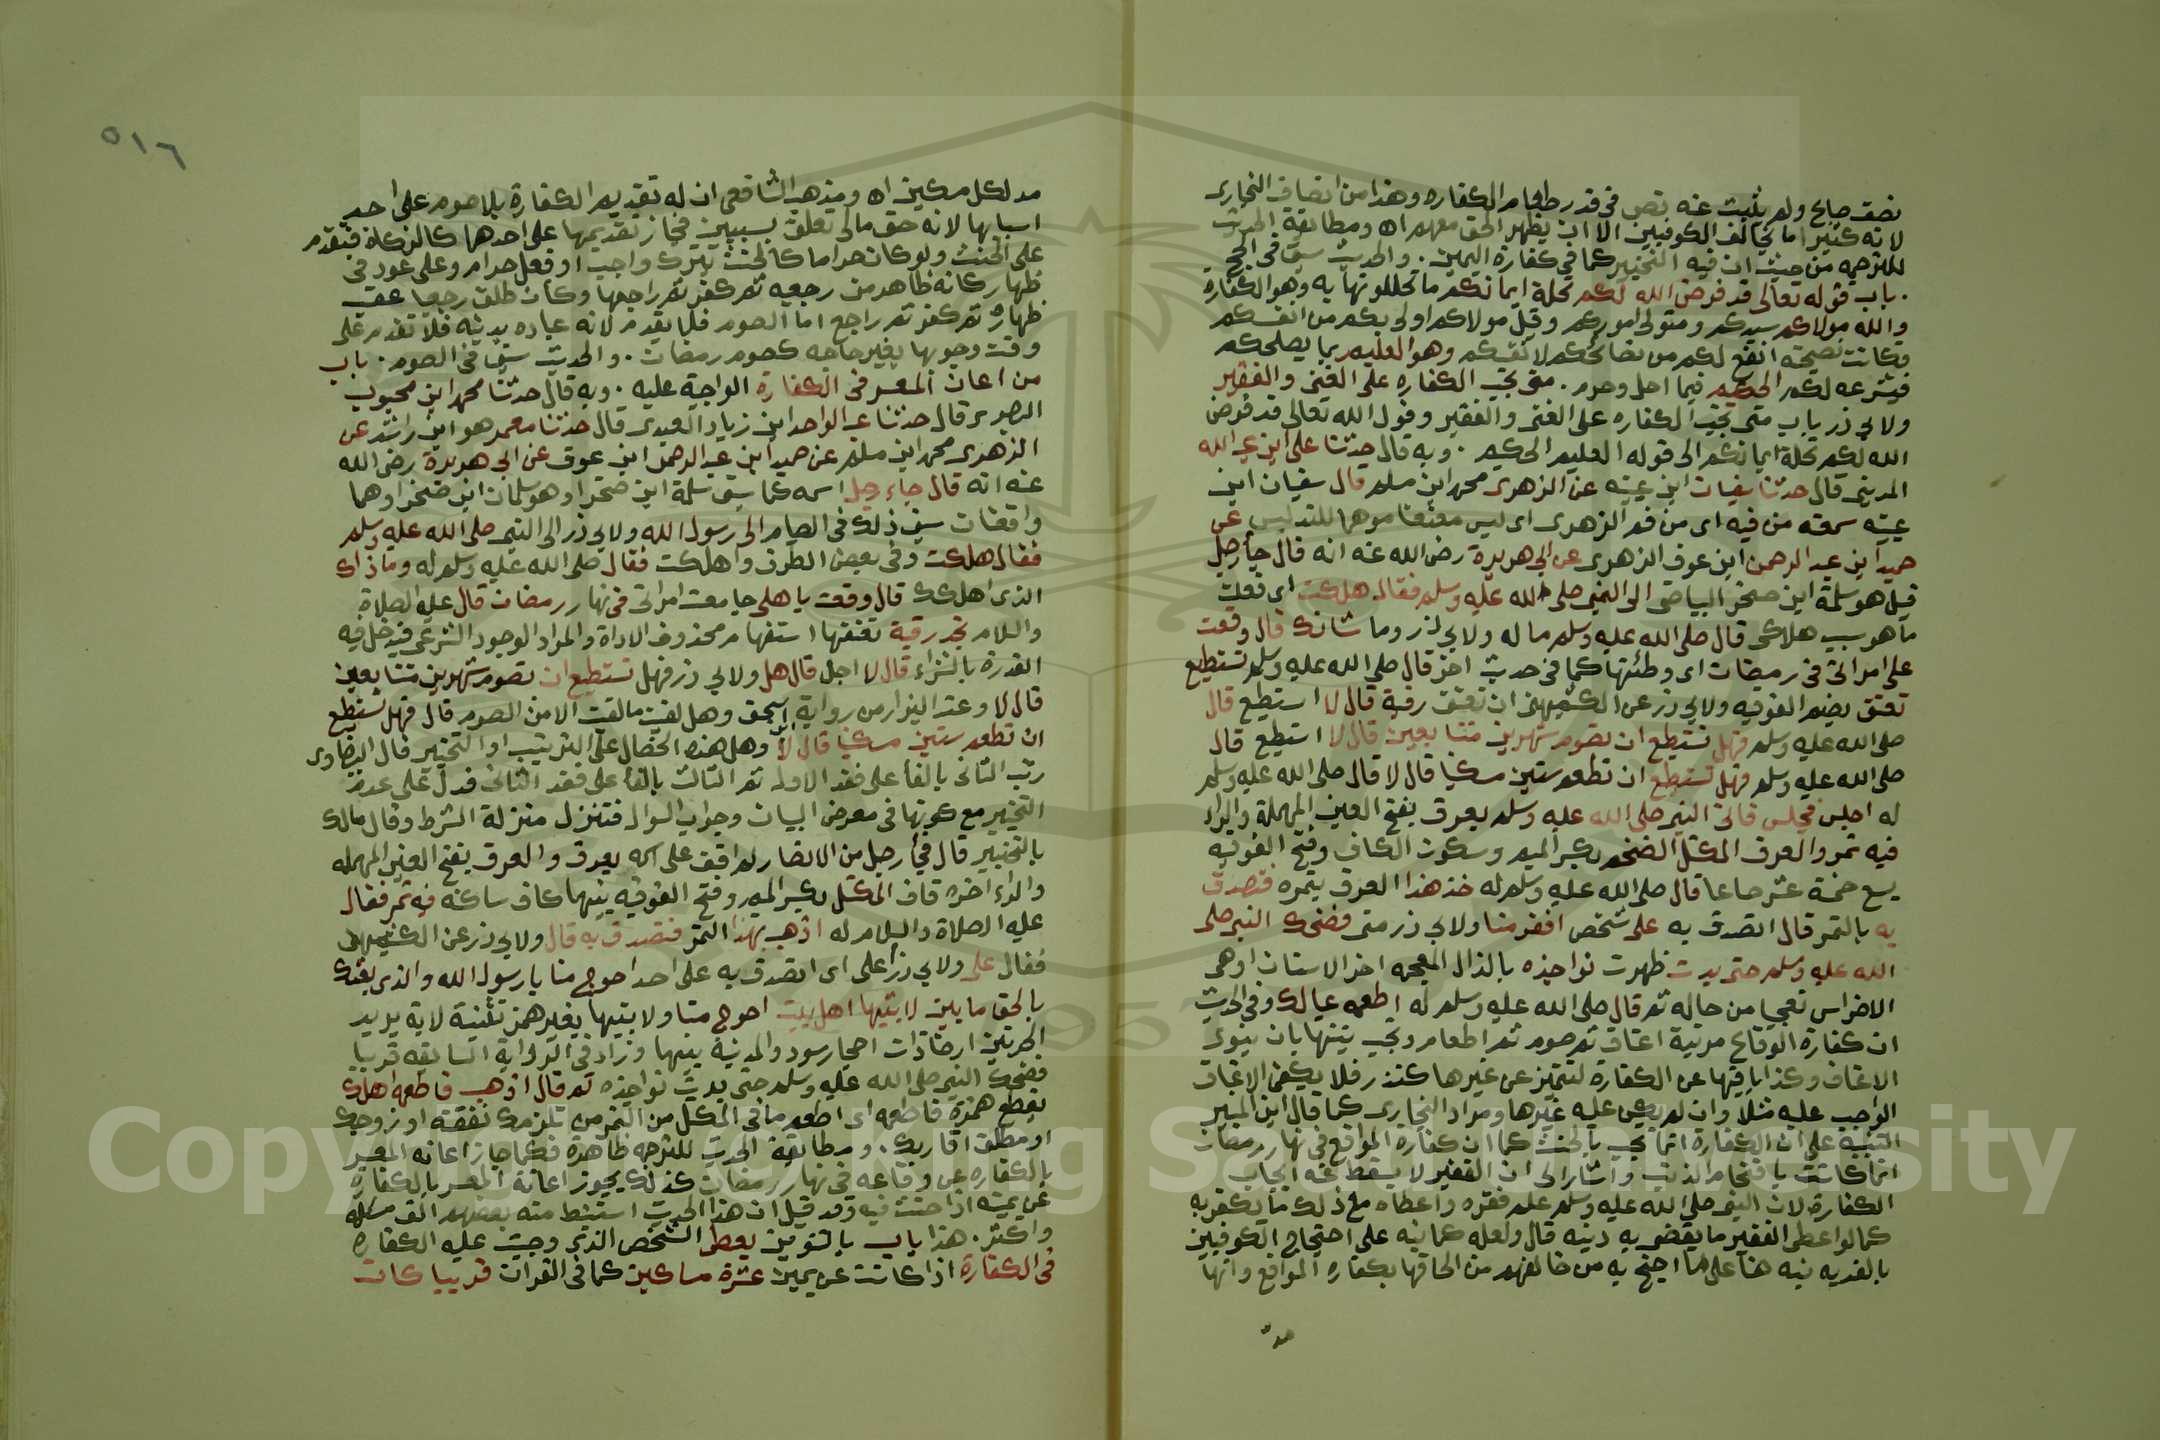 نصف صاع ولم يثبت عنه نص في قدر طعام الكفاره وهذا من انصاف البخاري
لانه كثيرا ما يخالف الكوفيين الا ان يظهر الحق معهم اه ومطابقة الحديث
للترجمه من حيث ان فيه التخيير كما في كفارة اليمين . والحديث سبق في الحج
. باب قوله تعالى قد فرض الله لكم تحلة ايمانكم ما تحللونها به وهو الكفاره
والله مولاكم سيدكم ومتولي اموركم وقيل مولاكم اولى بكم من انفسكم
فكانت نصيحته انفع لكم من نصائحكم لانفسكم وهو العليم بما يصلحكم
فيشرعه لكم الحكيم فيما احل وحرم . متى تجب الكفاره على الغنى والفقير
ولابي ذر باب متى تجب الكفاره على الغنى والفقير وقول الله تعالى قد فرض
الله لكم تحلة ايمانكم الى قوله العليم الحكيم . وبه قال حدثنا علي ابن عبد الله
المديني قال حدثنا سفيان ابن عيينه عن الزهرى محمد ابن مسلم قال سفيان ابن
عيينه سمعته من فيه اى من فم الزهرى اى ليس معنعنا موهما للتدليس عن
حميد ابن عبد الرحمن ابن عوف الزهرى عن ابي هريرة رضى الله عنه انه قال جاء رجل
قيل هو سلمة ابن صخر البياضى الى النبي صلى الله عليه وسلم فقال هلكت اى فعلت
ما هو سبب هلاكى قال صلى الله عليه وسلم ما له ولابي ذر وما شانك قال وقعت
على امراتى في رمضان اى وطئتها كما في حديث اخر قال صلى الله عليه وسلم تستطيع
تعتق بضم الفوقيه ولابي ذر عن الكشميهنى ان تعتق رقبة قال لا استطيع قال
صلى الله عليه وسلم فهل تستطيع ان تصوم شهرين متتابعين قال لا استطيع قال
صلى الله عليه وسلم فهل تستطيع ان تطعم ستين مسكينا قال لا قال صلى الله عليه وسلم
له اجلس فجلس فاتى النبي صلى الله عليه وسلم بعرق بفتح العين المهملة والراء
فيه تمر والعرق المكتل الضخم بكسر الميم وسكون الكاف وفتح الفوقيه
يسع خمسة عشر صاعا قال صلى الله عليه وسلم له خذ هذا العرق بتمره فتصدق
به بالتمر قال اتصدق به على شخص افقر منا ولابي ذر منى فضحك النبي صلى
الله عليه وسلم حتى بدت ظهرت نواجذه بالذال المعجمه اخر الاسنان او هى
الاضراس تعجبا من حاله ثم قال صلى الله عليه وسلم له اطعمه عيالك وفي الحديث
ان كفارة الوقاع مرتبة اعتاق ثم صوم ثم اطعام ويجب نيتها بان ينوى
الاعتاق وكذا باقيها عن الكفارة لتتميز عن غيرها كنذر فلا يكفى الاعتاق
الواجب عليه مثلا وان لم يكن عليه غيرها ومراد البخارى كما قال ابن المنير
التنبيه على ان الكفارة انما تجب بالحنث كما ان كفارة المواقع في نهار رمضان
انما كانت باقتحام الذنب واشار الى ان الفقير لا يسقط عنه ايجاب
الكفارة لان النبي صلى الله عليه وسلم علم فقره واعطاه مع ذلك ما يكفر به
كما لو اعطى الفقير ما يقضى به دينه قال ولعله كما نبه على احتجاج الكوفيين
بالفديه نبه هنا على ما احتج به من خالفهم من الحاقها بكفارة المواقع وانها
مد
٥١٦
مد لكل مسكين اه ومذهب الشافعى ان له تقديم الكفارة بلا صوم على احد
اسبابها لانه حق مالى تعلق بسببين فجاز تقديمها على احدهما كالزكاة فتقدم
على الحنث ولو كان حراما كالحنث بترك واجب او فعل حرام وعلى عود في
ظهار كانه ظاهر من رجعيه ثم كفر ثم راجعها وكان طلق رجعيا عقب
ظهاره ثم كفر ثم راجع اما الصوم فلا يقدم لانه عباده بدنيه فلا تقدم على
وقت وجوبها بغير حاجه كصوم رمضان . والحديث سبق في الصوم . باب
من اعان المعسر في الكفارة الواجبة عليه . وبه قال حدثنا محمد ابن محبوب
البصرى قال حدثنا عبد الواحد ابن زياد العبدى قال حدثنا معمر هو ابن راشد عن
الزهرى محمد ابن مسلم عن حميد ابن عبد الرحمن ابن عوف عن ابي هريرة رضى الله
عنه انه قال جاء رجل اسمه كما سبق سلمة ابن صخر او هو سلمان ابن صخر او هما
واقعتان سبق ذلك في الصيام الى رسول الله ولابي ذر الى النبي صلى الله عليه وسلم
فقال هلكت وفي بعض الطرق واهلكت فقال صلى الله عليه وسلم له وما ذاك
الذى اهلكك قال وقعت باهلى جامعت امراتى في نهار رمضان قال عليه الصلاة
والسلام تجد رقبة تعتقها استفهام محذوف الاداة والمراد الوجود الشرعى فيدخل فيه
القدرة بالشراء قال لا اجد قال هل ولابي ذر فهل تستطيع ان تصوم شهرين متتابعين
قال لا وعند البزار من رواية ابن اسحق وهل لقيت ما لقيت الا من الصوم قال فهل تستطيع
ان تطعم ستين مسكينا قال لا وهل هذه الخصال على الترتيب او التخيير قال البيضاوى
رتب الثانى بالفاء على فقد الاول ثم الثالث بالفاء على فقد الثانى فدل على عدم
التخيير مع كونها في معرض البيان وجواب السوال فتنزل منزلة الشرط وقال مالك
بالتخيير قال فجاء رجل من الانصار لم اقف على اسمه بعرق والعرق بفتح العين المهمله
والراء اخره قاف المكتل بكسر الميم وفتح الفوقيه بينهما كاف ساكنه فيه تمر فقال
عليه الصلاة والسلام له اذهب بهذا التمر فتصدق به قال ولابي ذر عن الكشميهنى
فقال على ولابي ذر أعلى اى اتصدق به على احد احوج منا يا رسول الله والذى بعثك
بالحق ما بين لابتيها اهل بيت احوج منا ولابتيها بغير همز تثنية لابة يريد
الحرتين ارضا ذات احجار سود والمدينة بينهما وزاد في الرواية السابقه قريبا
فضحك النبي صلى الله عليه وسلم حتى بدت نواجذه ثم قال اذهب فاطعمه اهلك
بقطع همزة فاطعمه اى اطعم ما في المكتل من التمر من تلزمك نفقته او زوجك
او مطلق اقاربك . ومطابقة الحديث للترجمه ظاهرة فكما جاز اعانه المعسر
بالكفاره عن وقاعه في نهار رمضان كذلك يجوز اعانة المعسر بالكفارة
عن يمينه اذا حنث فيه وقد قيل ان هذا الحديث استنبط منه بعضهم الف مسئله
واكثر . هذا باب بالتنوين يعطى الشخص الذي وجبت عليه الكفاره
في الكفارة اذا كانت عن يمين عشرة مساكين كما في القران قريبا كان
Copyright © King Saud University
1957